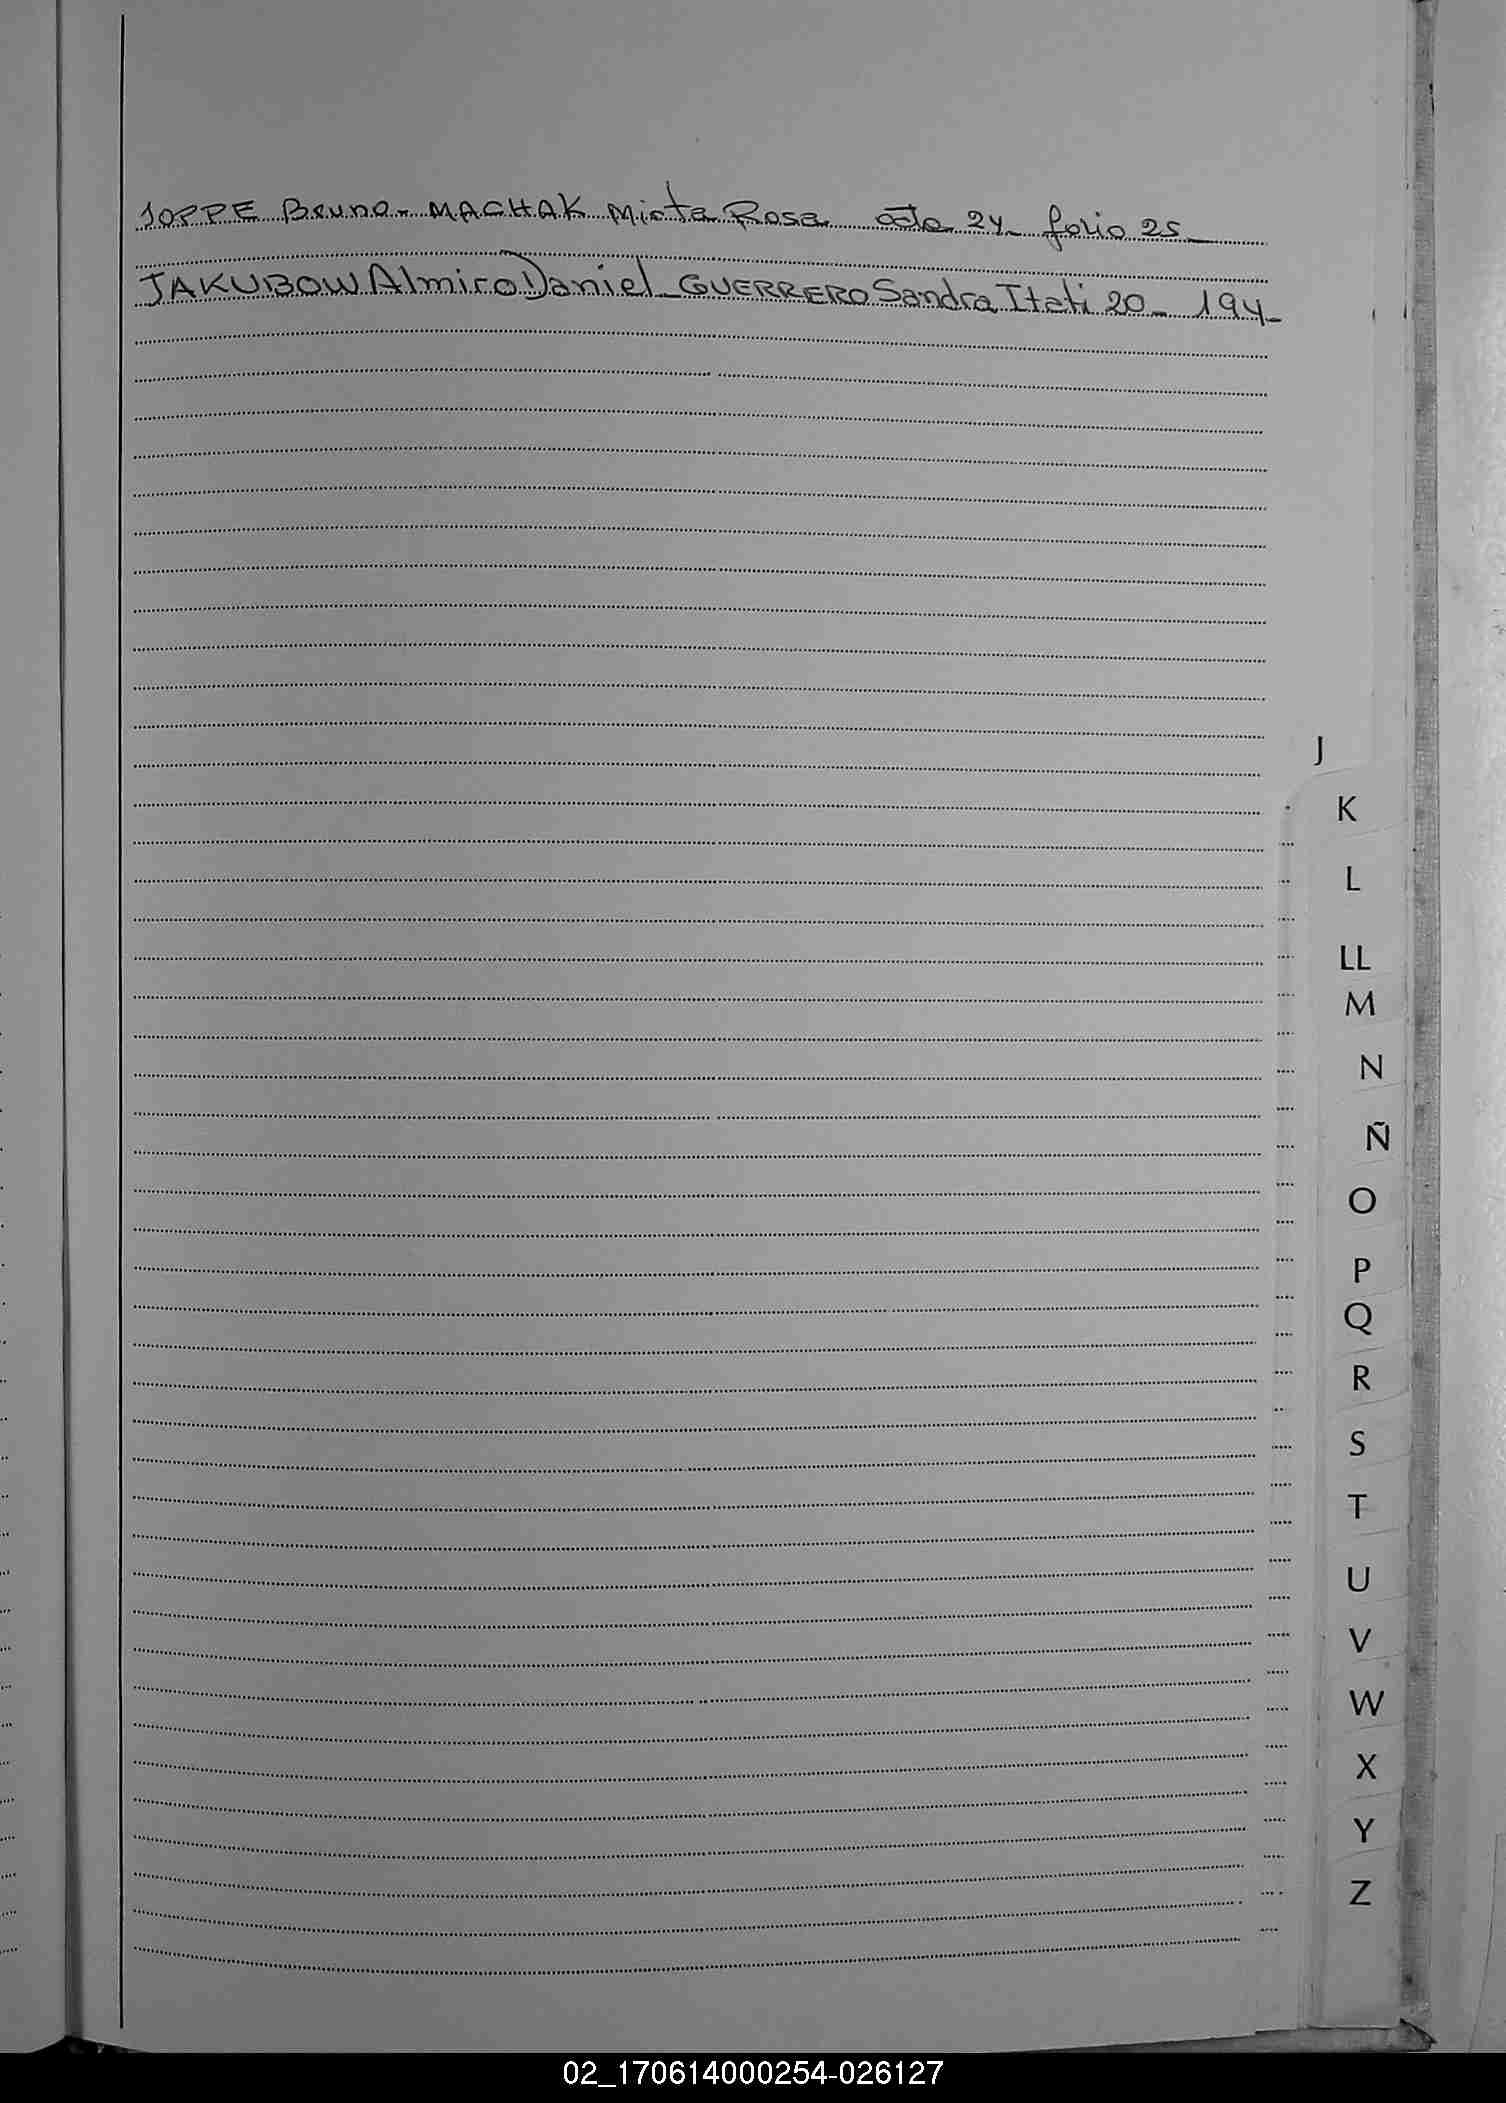 JOPPE Bruno - MACHAK Mirta Rosa acta 24 - folio 25 -
JAKUBOW Almiro Daniel - GUERRERO Sandra Itati 20 - 194 -
J
K
L
LL
M
N
Ñ
O
P
Q
R
S
T
U
V
W
X
Y
Z
02_170614000254-026127